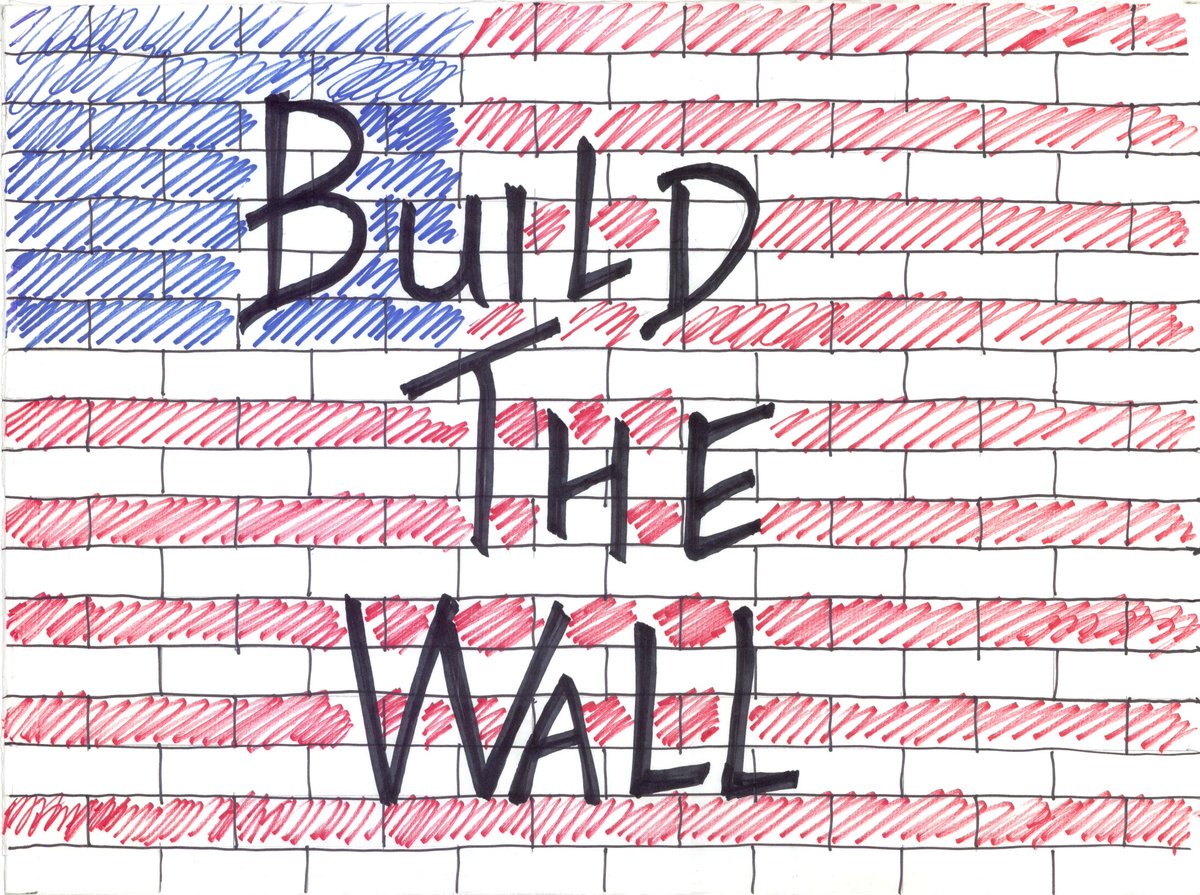 BuILD
THE
WALL